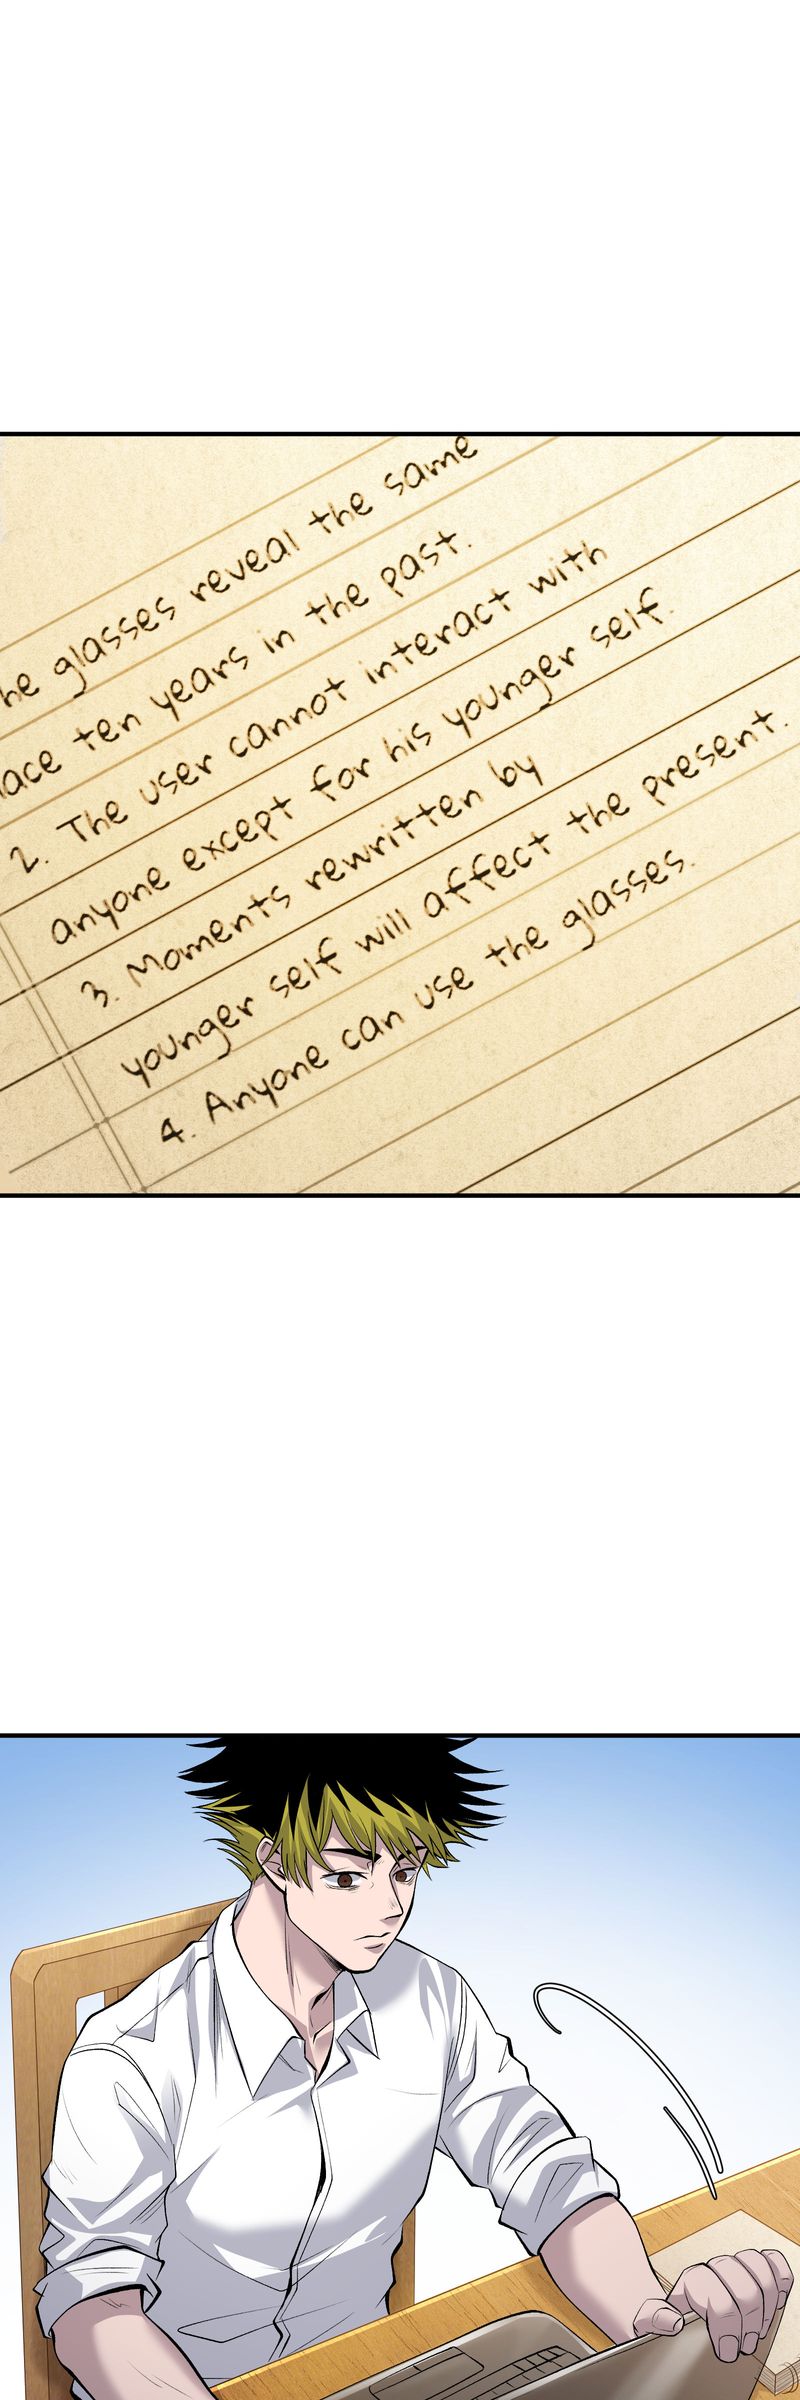 he glasses reveal the same
lace ten years in the past.
2. The user cannot interact with
anyone except for his younger self.
3. Moments rewritten by
younger self will affect the present.
4. Anyone can use the glasses.